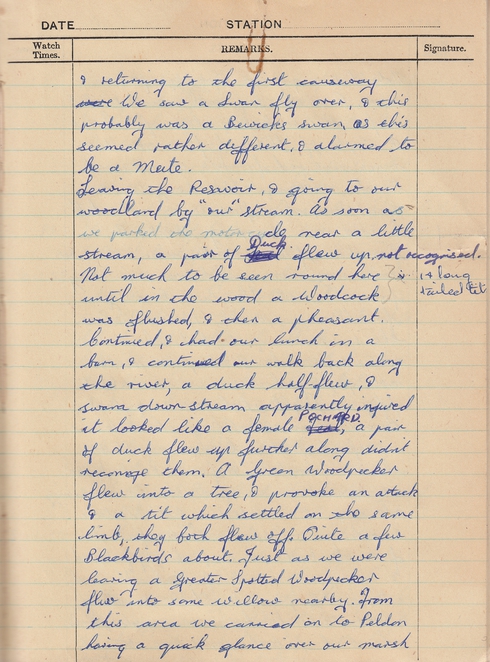 DATE STATION
Watch Times. REMARKS. Signature.
& returning to the first causeway
We saw a Swan fly over, & this
probably was a Bewicks swan, as this
seemed rather different, & alarmed to
be a Mute.
Leaving the Resavoir, & going to our
woodland by "our" stream. As soon as
we parked the motorcycle near a little
stream, a pair of Duck flew up, not recognised.
Not much to be seen round here & 14 long
until in the wood a Woodcock tailed tit
was flushed, & then a pheasant.
Continued, & had our lunch in a
barn, & continued our walk back along
the river, a duck half-flew, &
swam down stream apparently injured
it looked like a female POCHARD, a pair
of duck flew up further along didn't
recognise them. A Green Woodpecker
flew into a tree, & provoke an attack
& a tit which settled on the same
limb, they both flew off. Quite a few
Blackbirds about. Just as we were
leaving a Greater Spotted Woodpecker
flew into some willow nearby. From
this area we carried on to Peldon
having a quick glance over our marsh